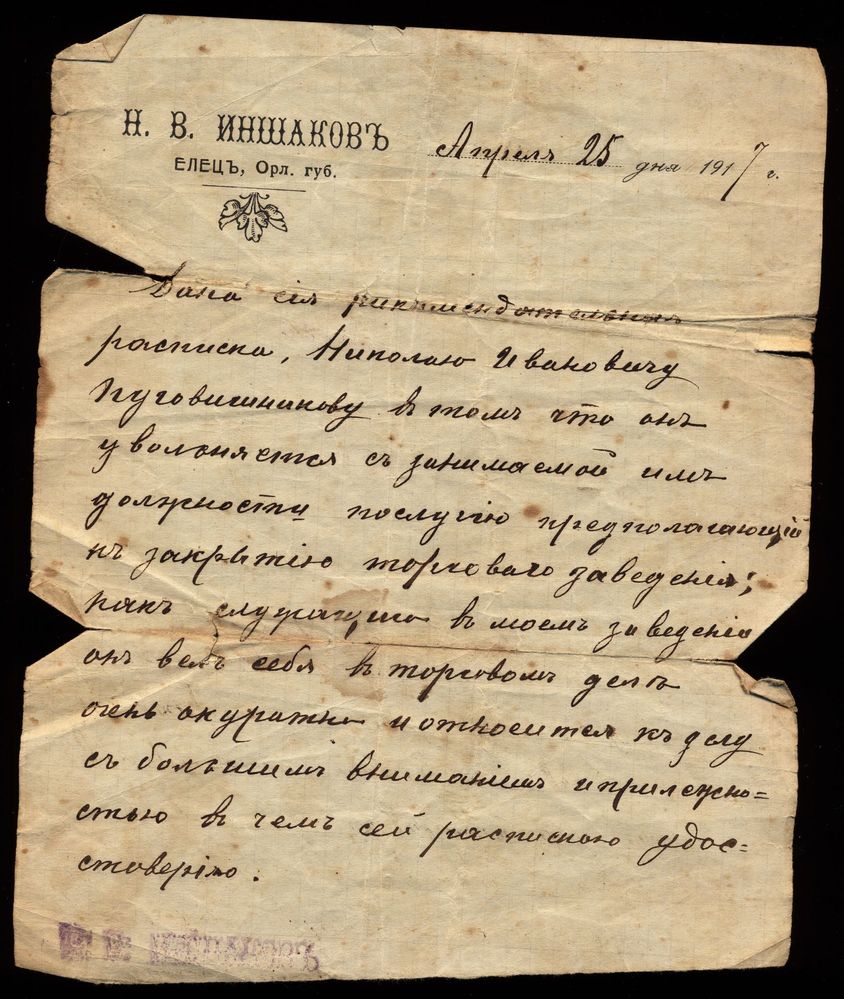 Н. В. ИНШАКОВЪ
ЕЛЕЦЪ, Орл. губ.
Апрель 25 дня 1917 г.
Дана сія рикамендательная
расписка, Николаю Ивановичу
Пуговишникову в томъ что онъ
уволоняется съ занимаемой имъ
должности послугію предполагающій
къ закрытію торговаго заведенія;
какъ служащего в моемъ заведеніе
онъ велъ себя в торговомъ делъ
очень акуратно и относится къ делу
съ большимъ вниманіемъ и прилежно=
стью в чемъ сей распискою удос=
стоверяю.
Н. В. ИНШАКОВЪ